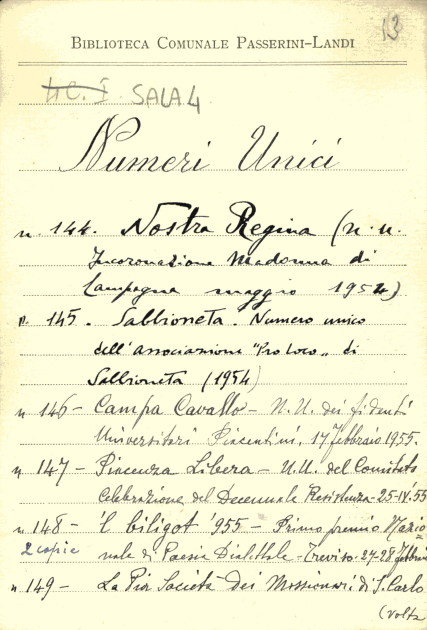 13
BIBLIOTECA COMUNALE PASSERINI-LANDI
4C. I SALA 4
Numeri Unici
n. 144. Nostra Regina (n.u.
Incoronazione Madonna di
Campagna maggio 1954)
n. 145. Sabbioneta. Numero unico
dell'associazione "Pro Loco" di
Sabbioneta (1954)
n 146 - Campa Cavallo - N.U. dei fidenti
Universitari Piacentini, 17 febbraio 1955.
n 147 - Piacenza Libera - N.U. del Comitato
Celebrazione del Decennale Resistenza - 25-IV-55
n 148 - 'l biligot '955 - Primo premio Nazio
2 copie nale di Poesia Dialettale - Treviso - 27-28 febbraio
n 149 - La Pia Società dei Missionari di S. Carlo
(volta